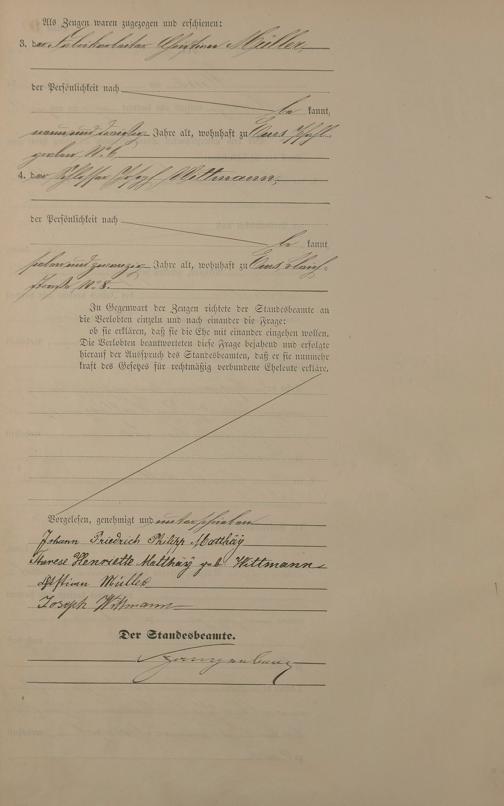 Als Zeugen waren zugezogen und erschienen:
3. der Fabrikarbeiter Christian Müller,
der Persönlichkeit nach
be kannt,
neunundzwanzig Jahre alt, wohnhaft zu Ems, Pfahl-
graben No
4. der Schlosser Joseph Wittmann,
der Persönlichkeit nach
be kannt
siebenundzwanzig Jahre alt, wohnhaft zu Ems,
straße No 8.
In Gegenwart der Zeugen richtete der Standesbeamte an
die Verlobten einzeln und nach einander die Frage:
ob sie erklären, daß sie die Ehe mit einander eingehen wollen.
Die Verlobten beantworteten diese Frage bejahend und erfolgte
hierauf der Ausspruch des Standesbeamten, daß er sie nunmehr
kraft des Gesetzes für rechtmäßig verbundene Eheleute erkläre.
Vorgelesen, genehmigt und unterschrieben
Johann Friedrich Philipp Matthäy
Therese Henriette Matthäy geb. Wittmann
Christian Müller
Joseph Wittmann
Der Standesbeamte.